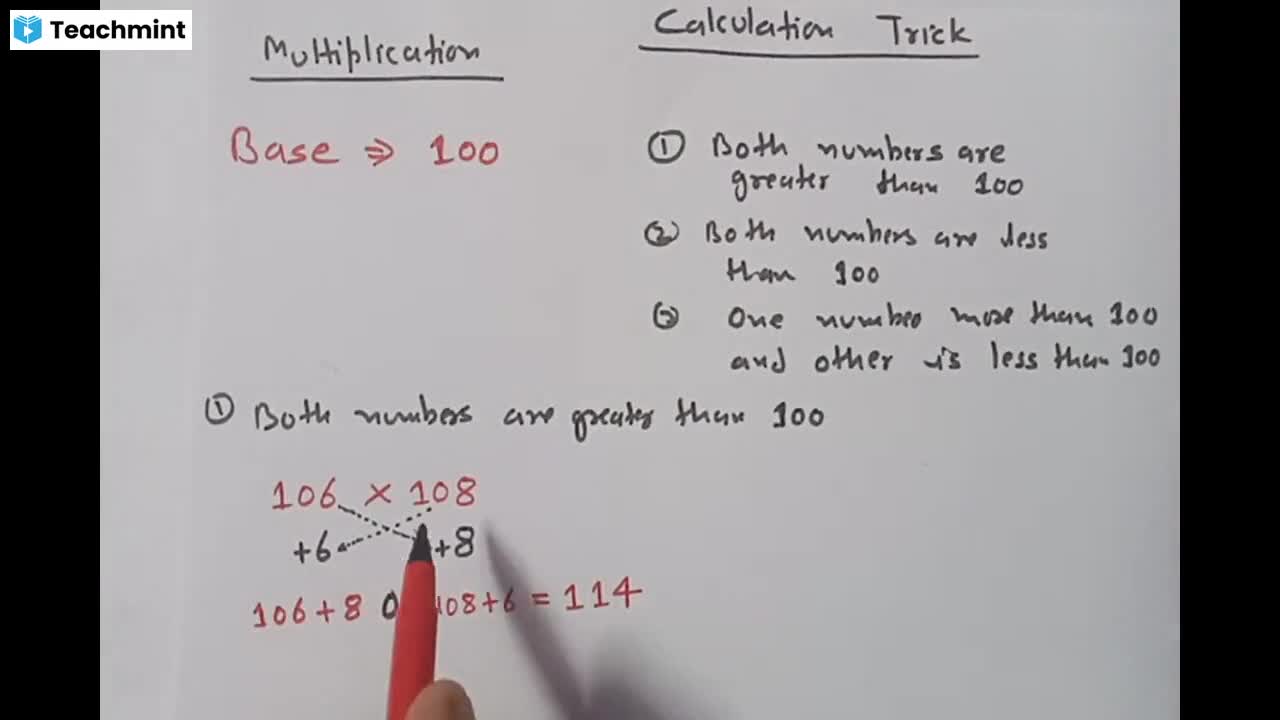 Teachmint
Multiplication
Calculation Trick
Base ⇒ 100
① Both numbers are
greater than 100
② Both numbers are less
than 100
③ One number more than 100
and other is less than 100
① Both numbers are greater than 100
106 × 108
+6 +8
106+8 108+6 = 114